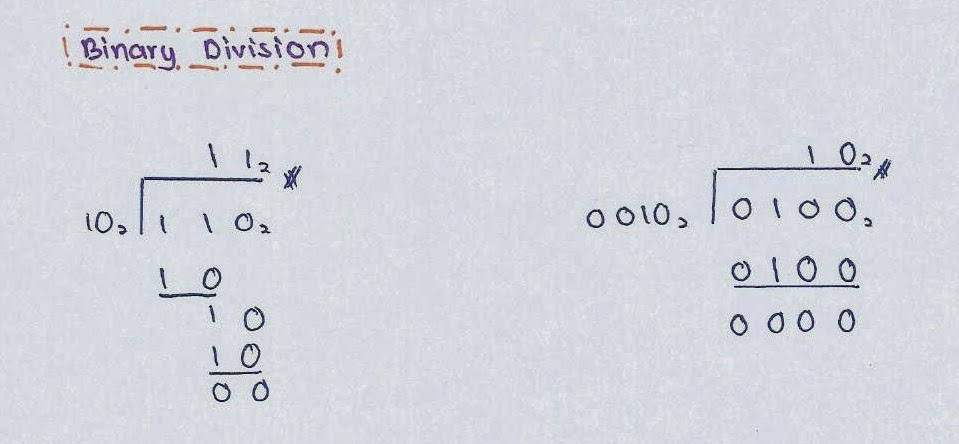 Binary Division
1 1₂
10₂ 1 1 0₂
1 0
1 0
1 0
0 0
1 0₂
0010₂ 0 1 0 0₂
0 1 0 0
0 0 0 0